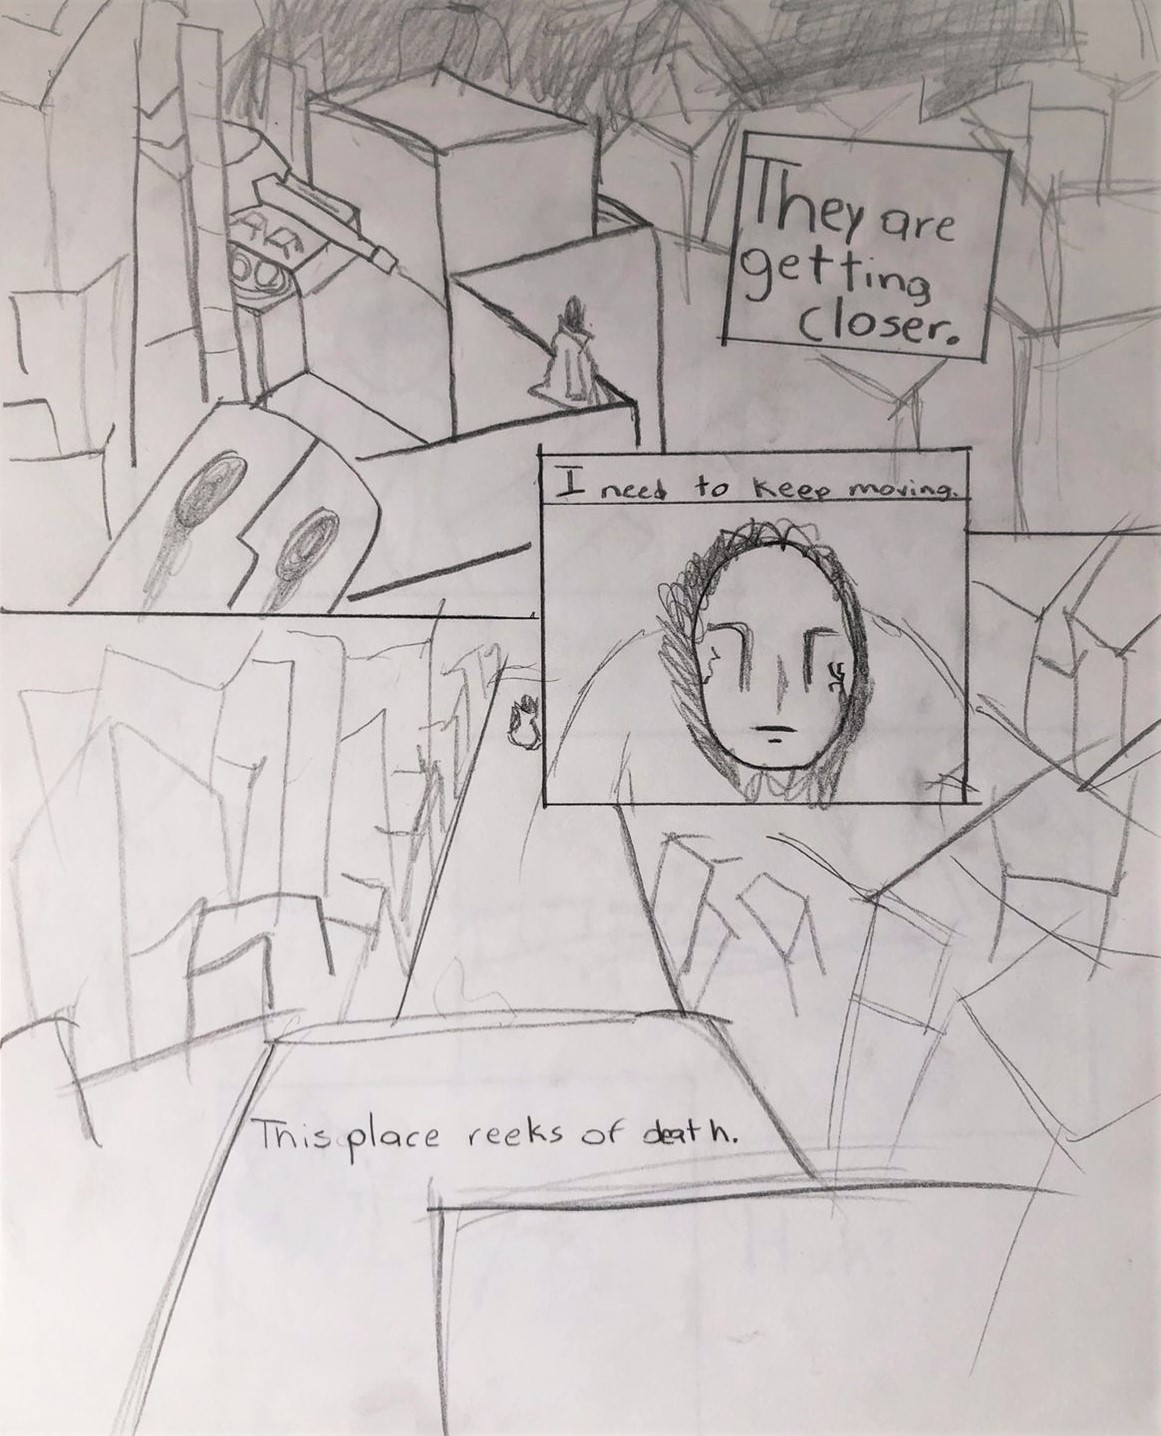 They are
getting
closer.
I need to keep moving.
This place reeks of death.